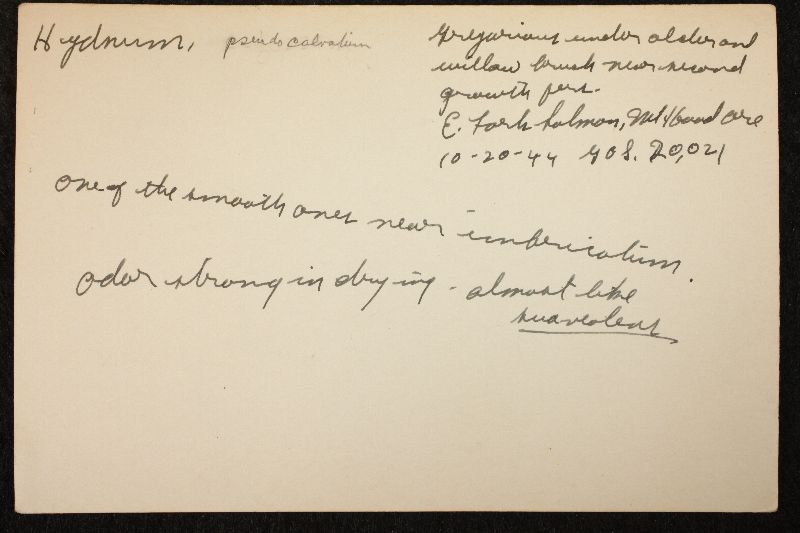 Hydnum, pseudocalvatum
Gregarious under alder and
willow brush near second
growth firs.
E. Fork Salmon, Mt Hood Ore
10-20-44 20,021
One of the smooth ones near imbricatum.
odor strong in drying - almost like
suaveolens